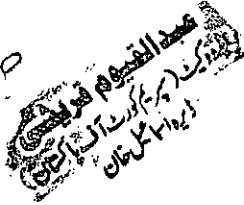 عبدالقیوم قریشی
ایڈووکیٹ سپریم کورٹ آف پاکستان
ڈیرہ اسماعیل خان